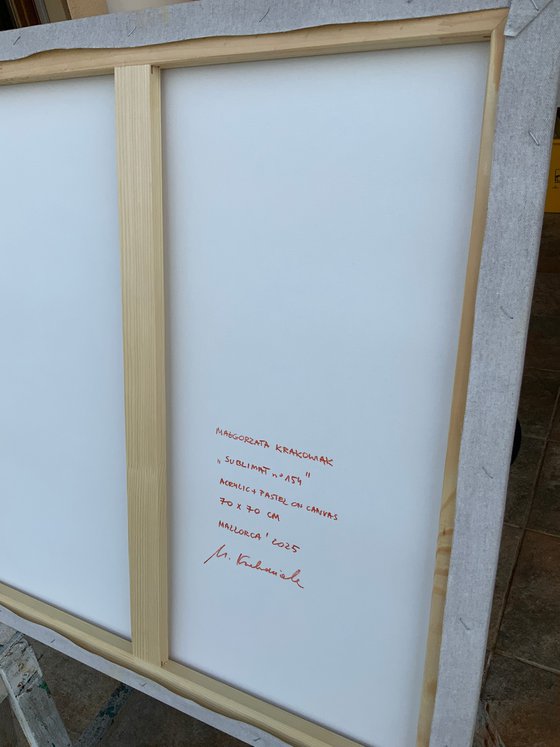 MAŁGORZATA KRAKOWIAK
„SUBLIMAT n° 154"
ACRYLIC + PASTEL ON CANVAS
70 X 70 CM
MALLORCA ' 2025
M. Krakowiak